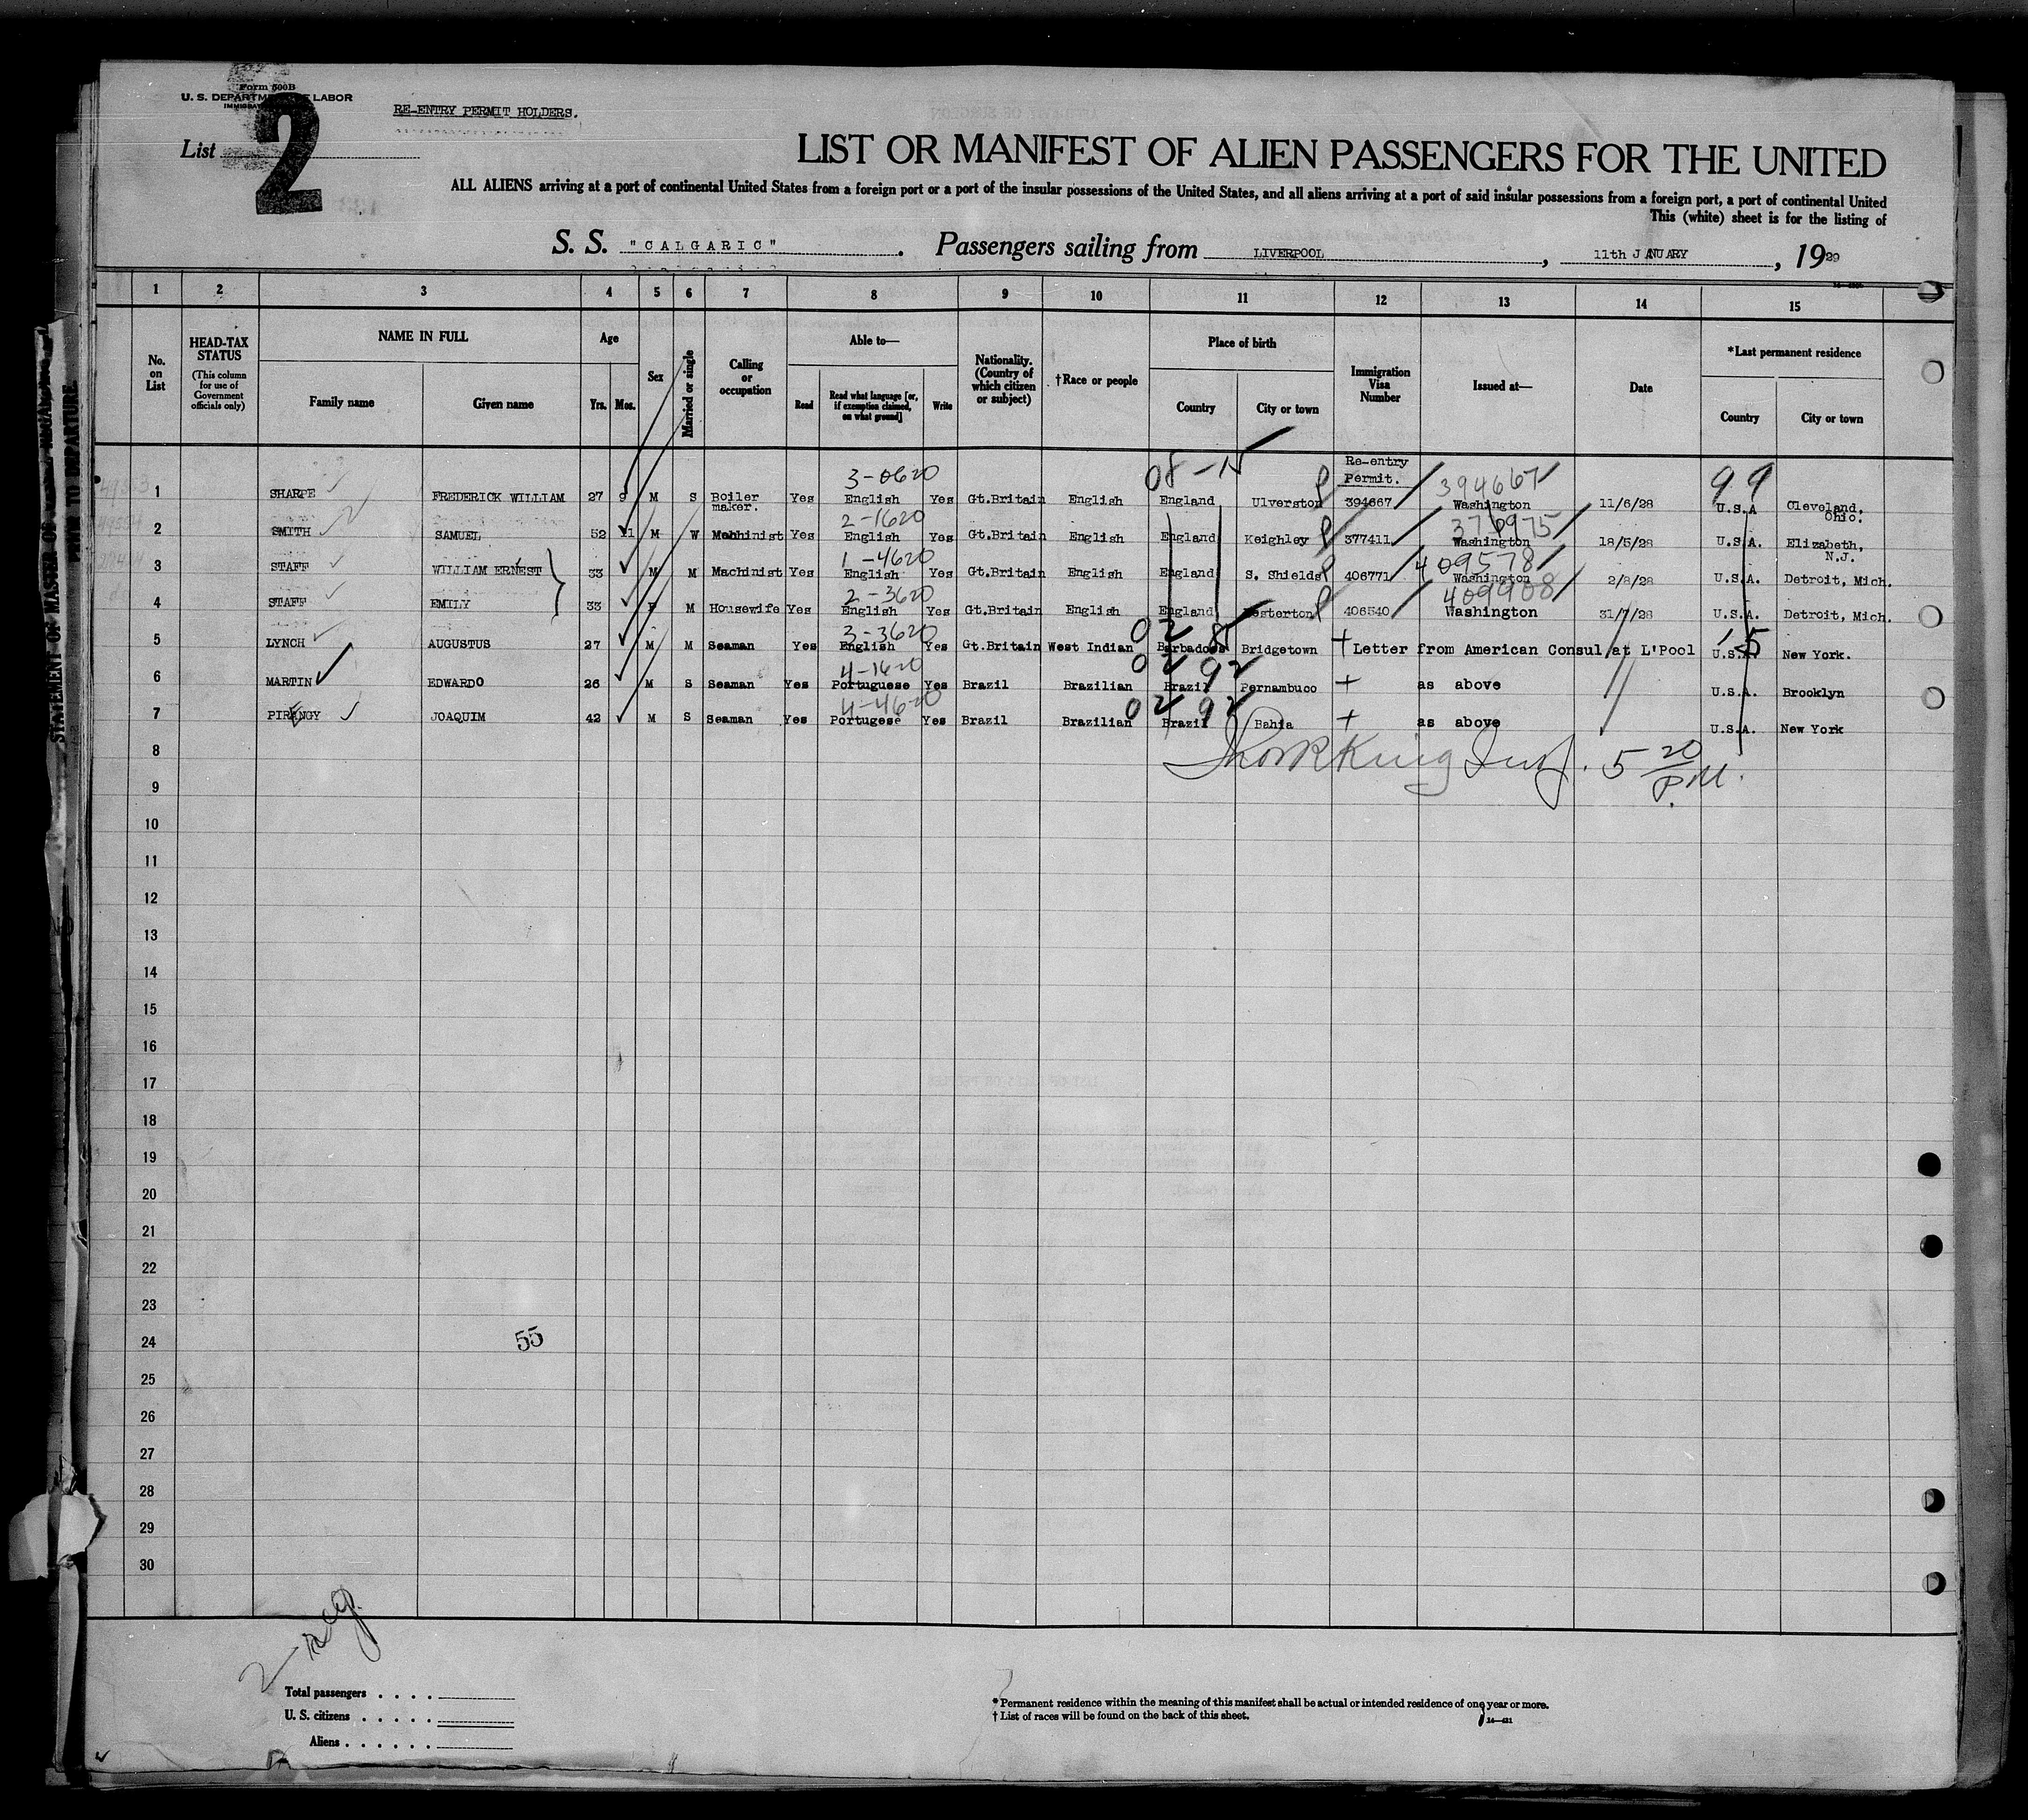 Form 500B
U. S. DEPARTMENT OF LABOR
RE-ENTRY PERMIT HOLDERS.
List 2
LIST OR MANIFEST OF ALIEN PASSENGERS FOR THE UNITED
ALL ALIENS arriving at a port of continental United States from a foreign port or a port of the insular possessions of the United States, and all aliens arriving at a port of said insular possessions from a foreign port, a port of continental United
This (white) sheet is for the listing of
S. S. "CALGARIC". Passengers sailing from LIVERPOOL, 11th JANUARY, 1929
1 2 3 4 5 6 7 8 9 10 11 12 13 14 15
No. on List
HEAD-TAX STATUS (This column for use of Government officials only)
NAME IN FULL
Family name Given name
Age
Yrs. Mos.
Sex
Married or single
Calling or occupation
Able to—
Read
Read what language [or, if exemption claimed, on what ground]
Write
Nationality. (Country of which citizen or subject)
†Race or people
Place of birth
Country City or town
Immigration Visa Number
Issued at—
Date
*Last permanent residence
Country City or town
3-0620 08-15 Re-entry Permit. 394667 99
1 SHARPE FREDERICK WILLIAM 27 9 M S Boiler maker. Yes English Yes Gt.Britain English England Ulverston 394667 Washington 11/6/28 U.S.A Cleveland, Ohio.
2-1620 370975
2 SMITH SAMUEL 52 11 M W Machinist Yes English Yes Gt.Britain English England Keighley 377411 Washington 18/5/28 U.S.A. Elizabeth, N.J.
1-4620 409578
3 STAFF WILLIAM ERNEST 33 M M Machinist Yes English Yes Gt.Britain English England S. Shields 406771 Washington 2/8/28 U.S.A. Detroit, Mich.
2-3620 409908
4 STAFF EMILY 33 F M Housewife Yes English Yes Gt.Britain English England 406540 Washington 31/7/28 U.S.A. Detroit, Mich.
3-3620 02 15
5 LYNCH AUGUSTUS 27 M M Seaman Yes English Yes Gt.Britain West Indian Barbados Bridgetown + Letter from American Consul at L'Pool U.S.A. New York.
4-1620 02 92
6 MARTIN EDWARDO 26 M S Seaman Yes Portuguese Yes Brazil Brazilian Brazil Pernambuco + as above U.S.A. Brooklyn
4-4620 02 92
7 PIRANGY JOAQUIM 42 M S Seaman Yes Portugese Yes Brazil Brazilian Brazil Bahia + as above U.S.A. New York
8
King 5 20 P.M.
9
10
11
12
13
14
15
16
17
18
19
20
21
22
23
24 55
25
26
27
28
29
30
Total passengers . . . .
U. S. citizens . . . . .
Aliens . . . . . .
*Permanent residence within the meaning of this manifest shall be actual or intended residence of one year or more.
† List of races will be found on the back of this sheet.
STATEMENT OF MASTER OF
PRIOR TO DEPARTURE.